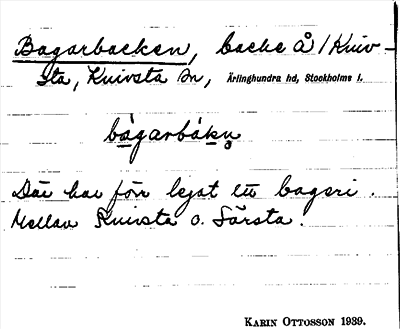 Bagarbacken, backe å / Kniv-
sta, Knivsta sn, Ärlinghundra hd, Stockholms l.
bàgarbákn̥
Där har förr legat ett bageri.
Mellan Knivsta o. Särsta.
KARIN OTTOSSON 1939.